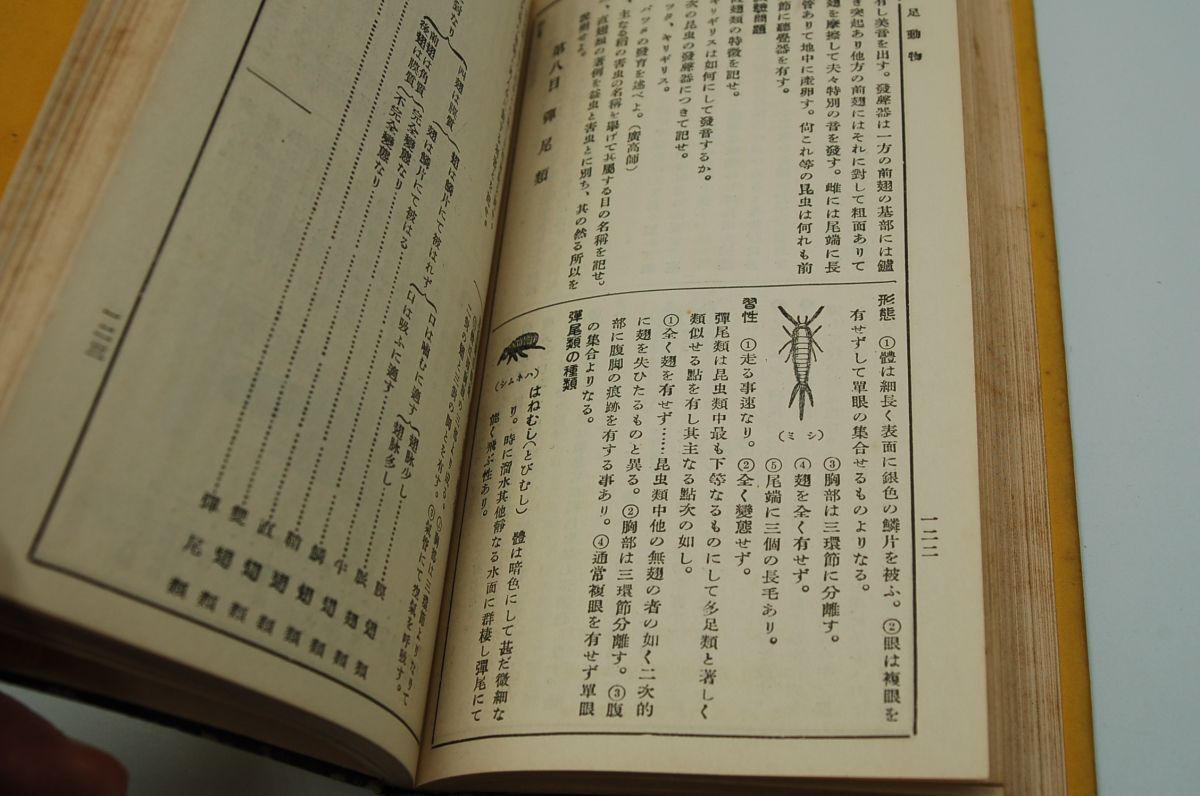 足動物
有し美音を出す。發聲器は一方の前翅の基部には鑢
き突起あり他方の前翅にはそれに對して粗面ありて
翅を摩擦して夫々特別の音を發す。雌には尾端に長
管ありて地中に產卵す。尙これ等の昆虫は何れも前
節に聽覺器を有す。
試驗問題
翅類の特徵を記せ。
キリギリスは如何にして發音するか。
次の昆虫の發聲器につきて記せ。
バッタ、キリギリス。
バッタの發育を述べよ。(廣高師)
主なる稻の害虫の名稱を擧げて其屬する目の名稱を記せ。
直翅類の著例を益虫と害虫とに別ち、其の然る所以を
說明せよ。
第八目 彈尾類
一二二
形態 ①體は細長く表面に銀色の鱗片を被ふ。②眼は複眼を
有せずして單眼の集合せるものよりなる。
③胸部は三環節に分離す。
④翅を全く有せず。
⑤尾端に三個の長毛あり。
(シミ)
習性 ①走る事速なり。②全く變態せず。
彈尾類は昆虫類中最も下等なるものにして多足類と著しく
類似せる點を有し其主なる點次の如し。
①全く翅を有せず……昆虫類中他の無翅の者の如く二次的
に翅を失ひたるものと異る。②胸部は三環節分離す。③腹
部に腹脚の痕跡を有する事あり。④通常複眼を有せず單眼
の集合よりなる。
彈尾類の種類
はねむし(とびむし) 體は暗色にして甚だ微細な
り。時に溜水其他靜なる水面に群棲し彈尾にて
能く飛ぶ性あり。
(ハネムシ)
三環節よりなりて
③氣管にて空氣を呼吸す。
四翅は膜質
前翅は角質
後翅は膜質
翅は鱗片にて被はれず
翅は鱗片にて被はる
完全變態なり
不完全變態なり
口は嚙むに適す
口は吸ふに適す
翅脈少し
翅脈多し
膜翅類
脈翅類
半翅類
鱗翅類
鞘翅類
直翅類
雙翅類
彈尾類
一二三